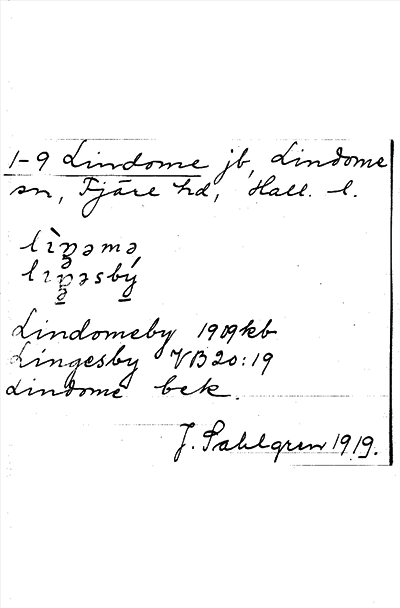 1-9 Lindome jb, Lindome
sn, Fjäre hd, Hall. l.
Lindomeby 1909kb
Lingesby VB20:19
Lindome bek.
J. Sahlgren 1919.